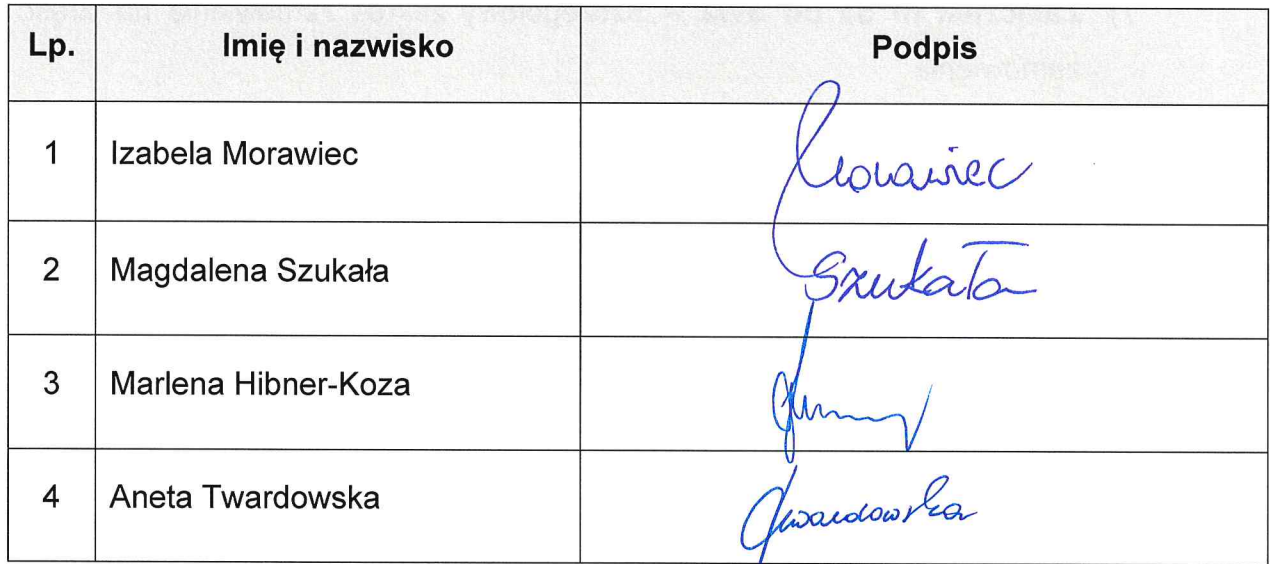 Lp. Imię i nazwisko Podpis
1 Izabela Morawiec Morawiec
2 Magdalena Szukała Szukała
3 Marlena Hibner-Koza
4 Aneta Twardowska Twardowska